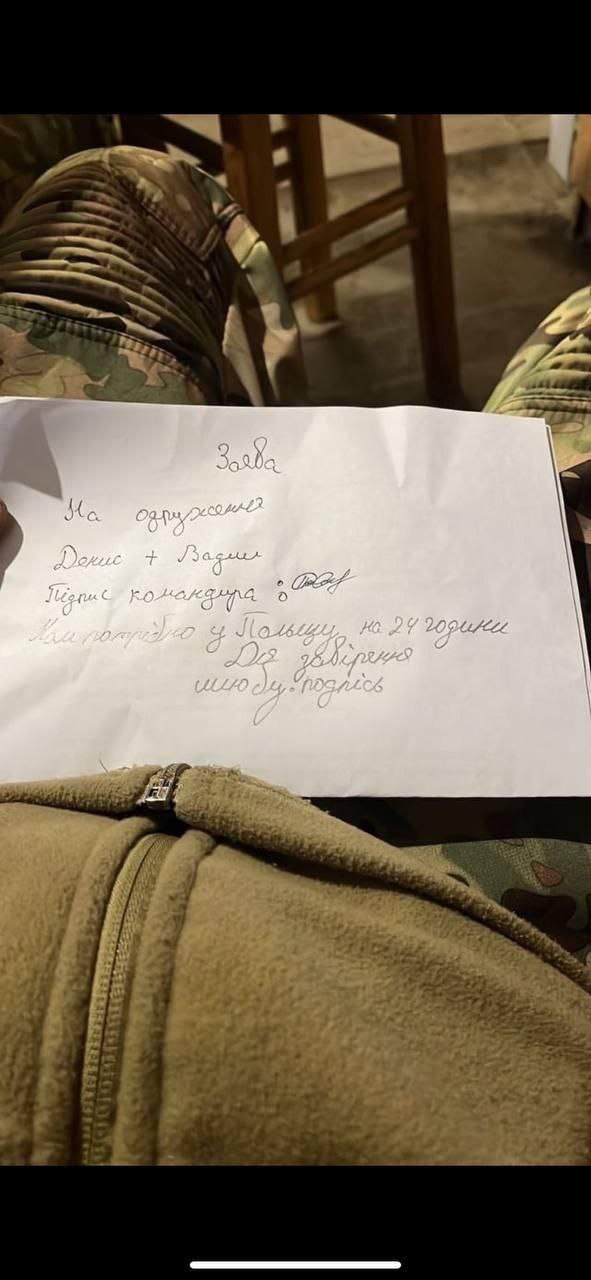 Заява
На одруження
Денис + Вадим
Підпис командира :
Нам потрібно у Польщу на 24 години
Для завірення
шлюбу. подпісь